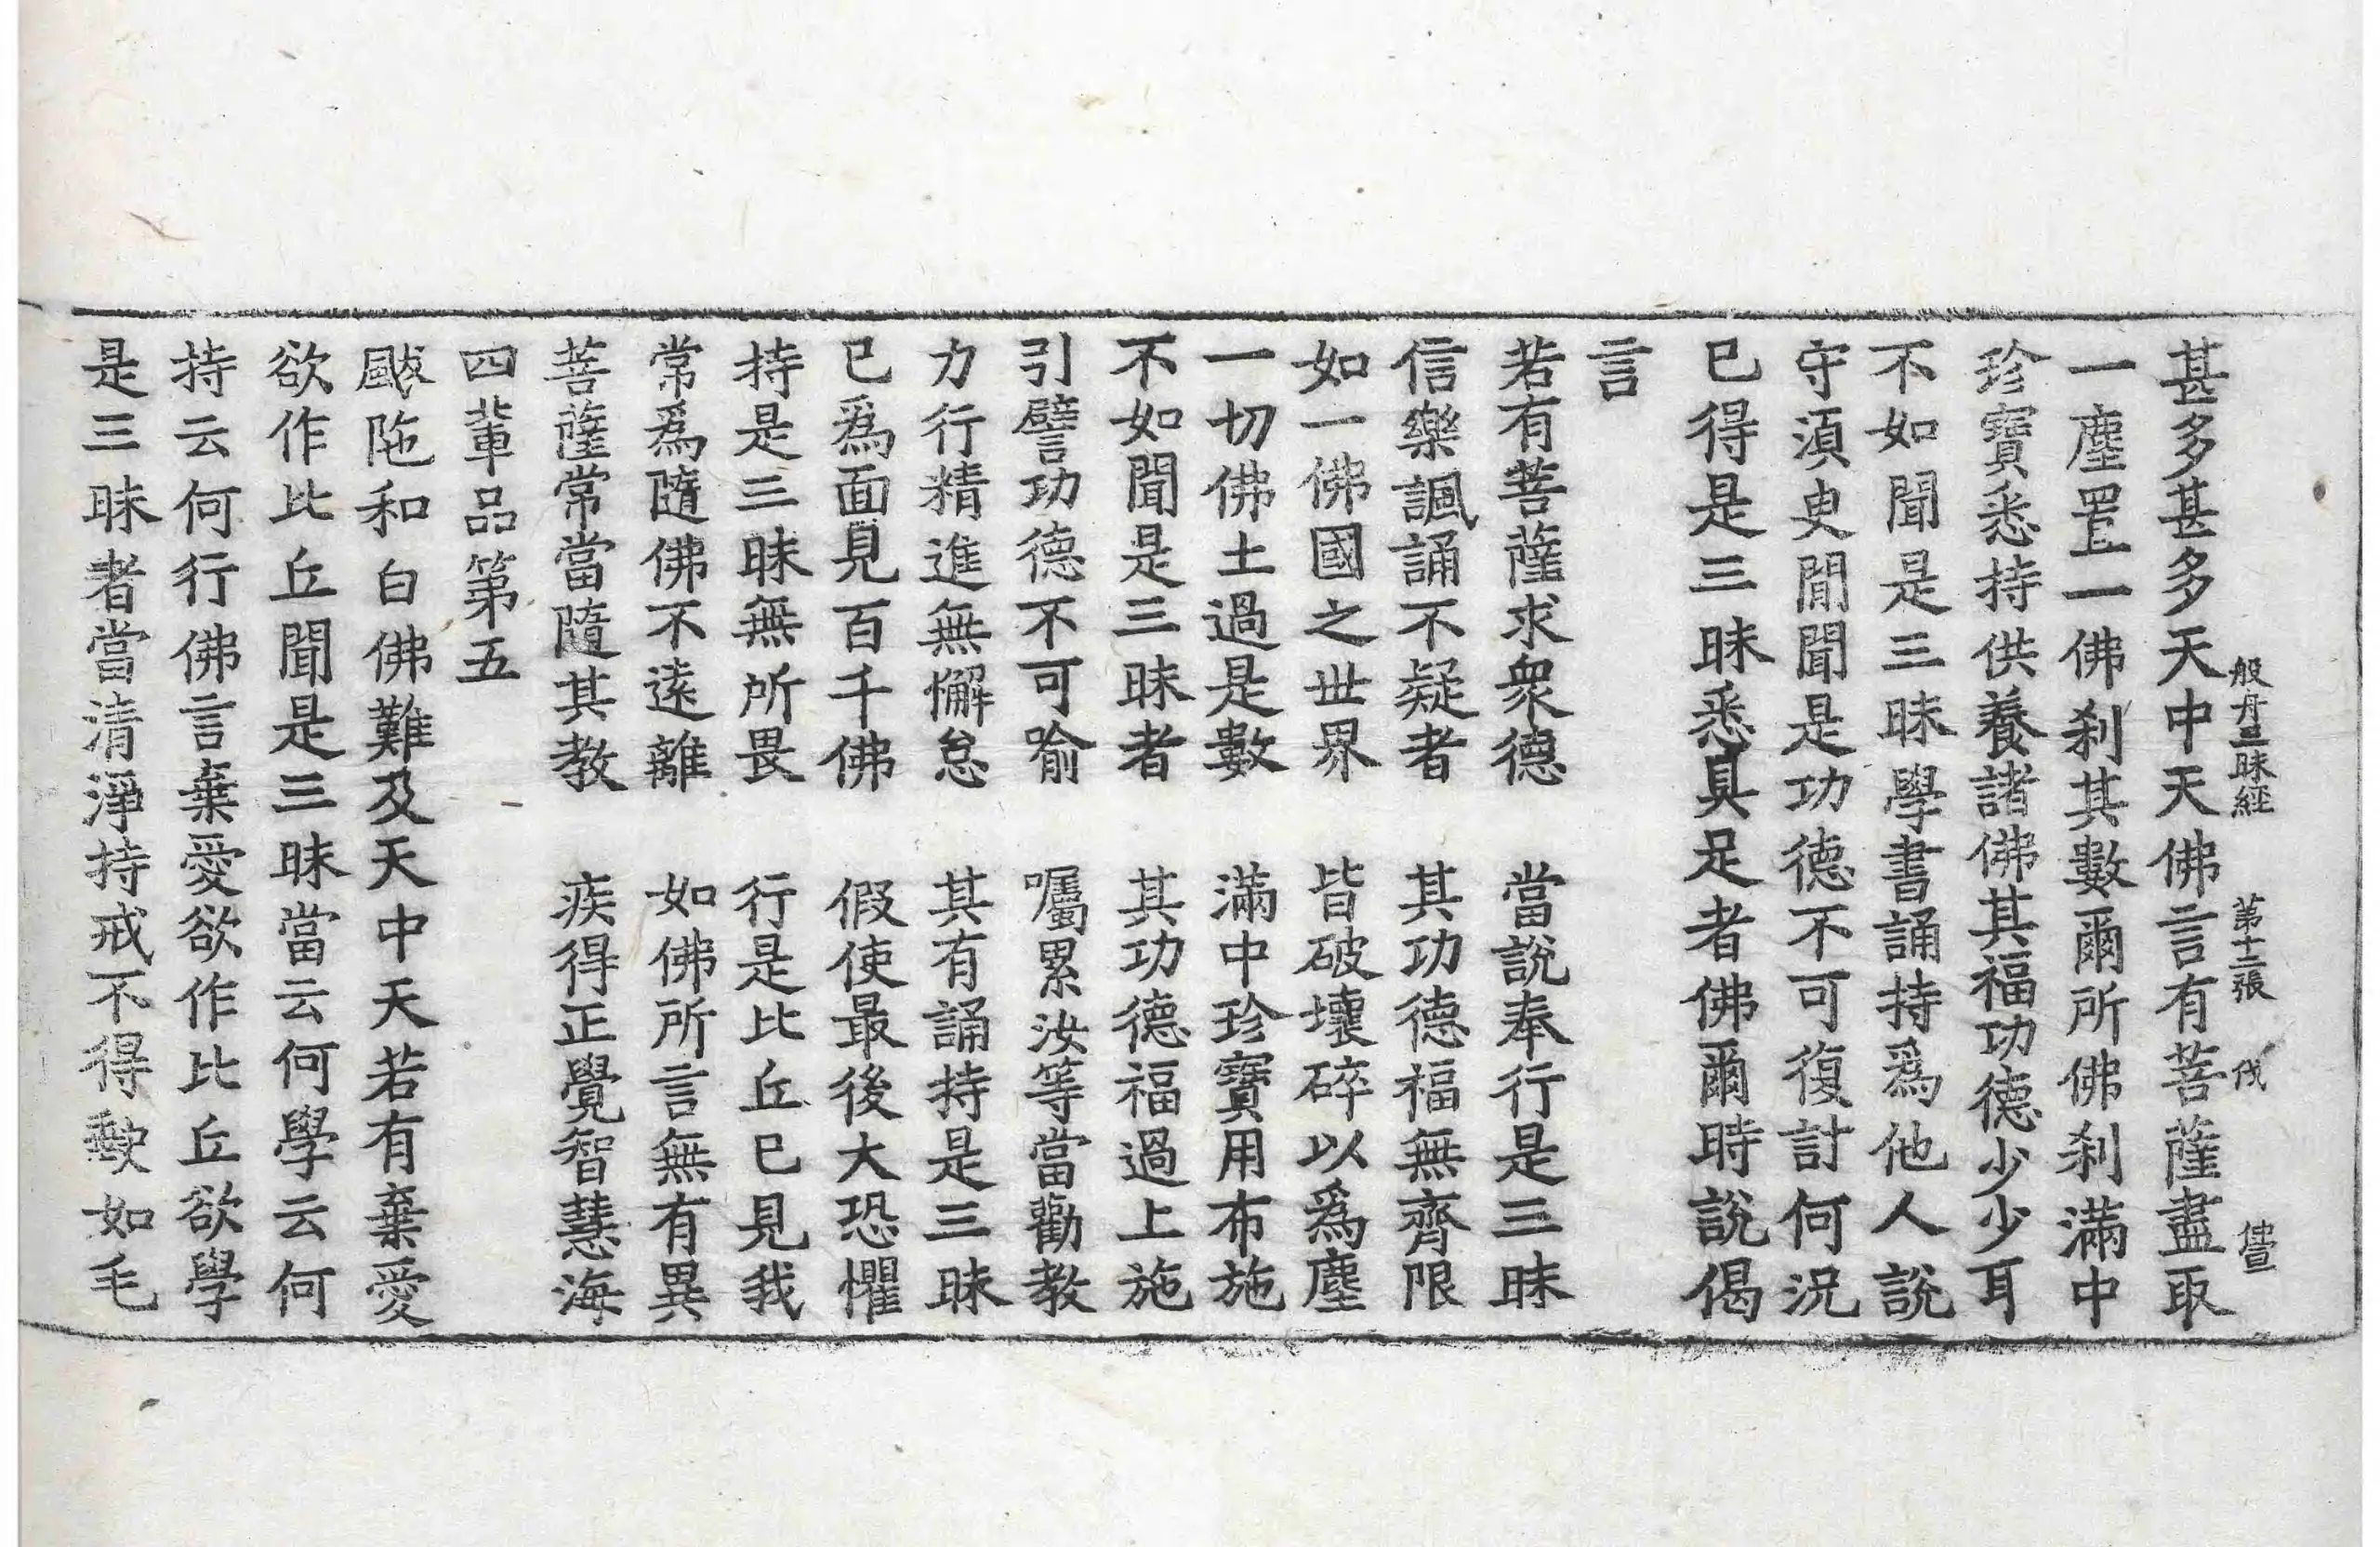 般舟三昧經　第十二張　伐
甚多甚多天中天佛言有菩薩盡取
一塵置一佛刹其數爾所佛刹滿中
珍寶悉持供養諸佛其福功德少少耳
不如聞是三昧學書誦持爲他人說
守須臾閒聞是功德不可復計何況
已得是三昧悉具足者佛爾時說偈
言
若有菩薩求衆德　當說奉行是三昧
信樂諷誦不疑者　其功德福無齊限
如一佛國之世界　皆破壞碎以爲塵
一切佛土過是數　滿中珍寶用布施
不如聞是三昧者　其功德福過上施
引譬功德不可喻　囑累汝等當勸教
力行精進無懈怠　其有誦持是三昧
已爲面見百千佛　假使最後大恐懼
持是三昧無所畏　行是比丘已見我
常爲隨佛不遠離　如佛所言無有異
菩薩常當隨其教　疾得正覺智慧海
四輩品第五
颰陁和白佛難及天中天若有棄愛
欲作比丘聞是三昧當云何學云何
持云何行佛言棄愛欲作比丘欲學
是三昧者當清淨持戒不得缺如毛